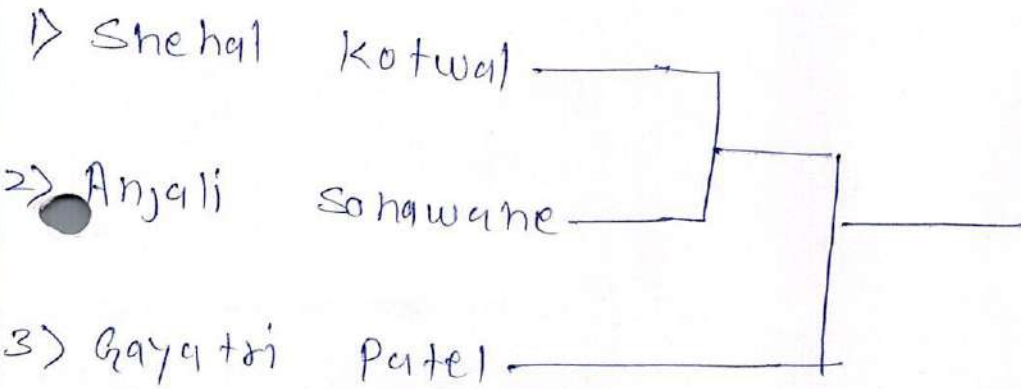 1) Snehal Kotwal
2) Anjali Sonawane
3) Gayatri Patel